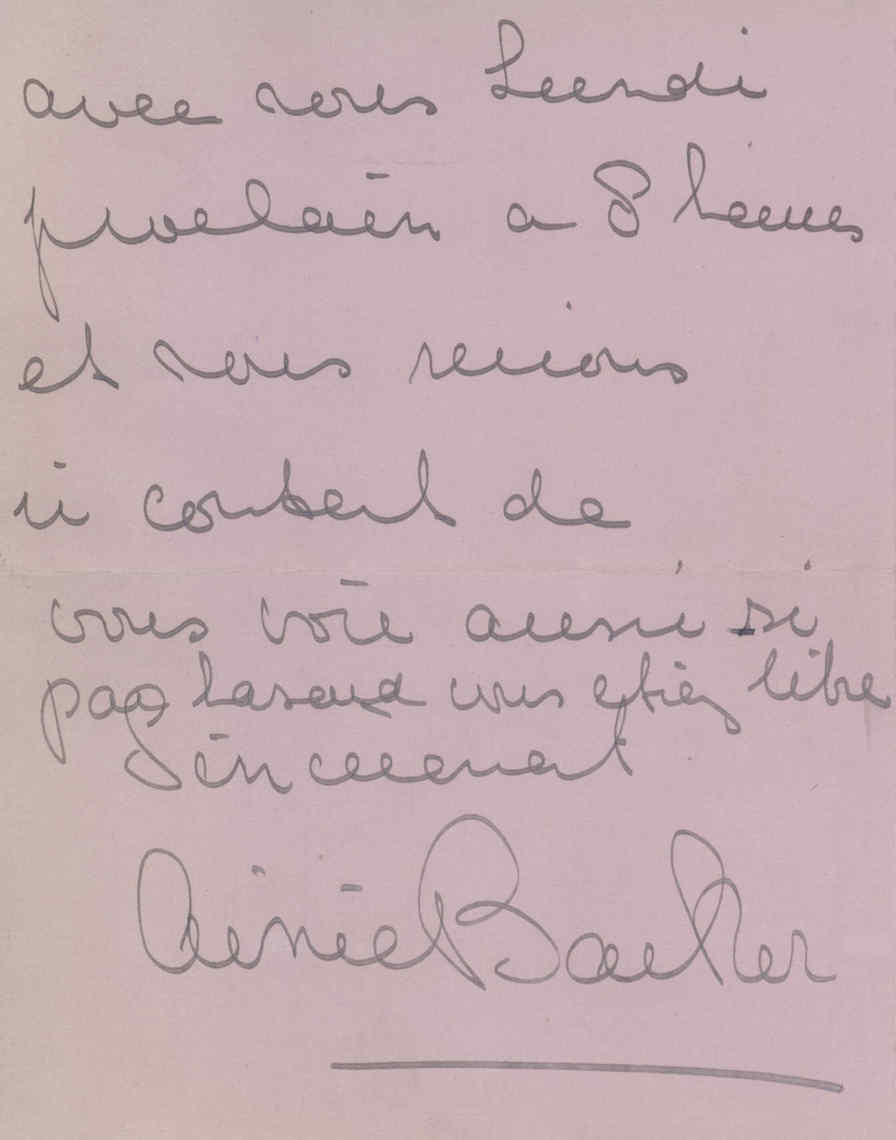 avec nous Lundi
prochain a 8 heures
et nous serions
si content de
vous voir aussi si
par hasard vous etiez libre
Sincerement